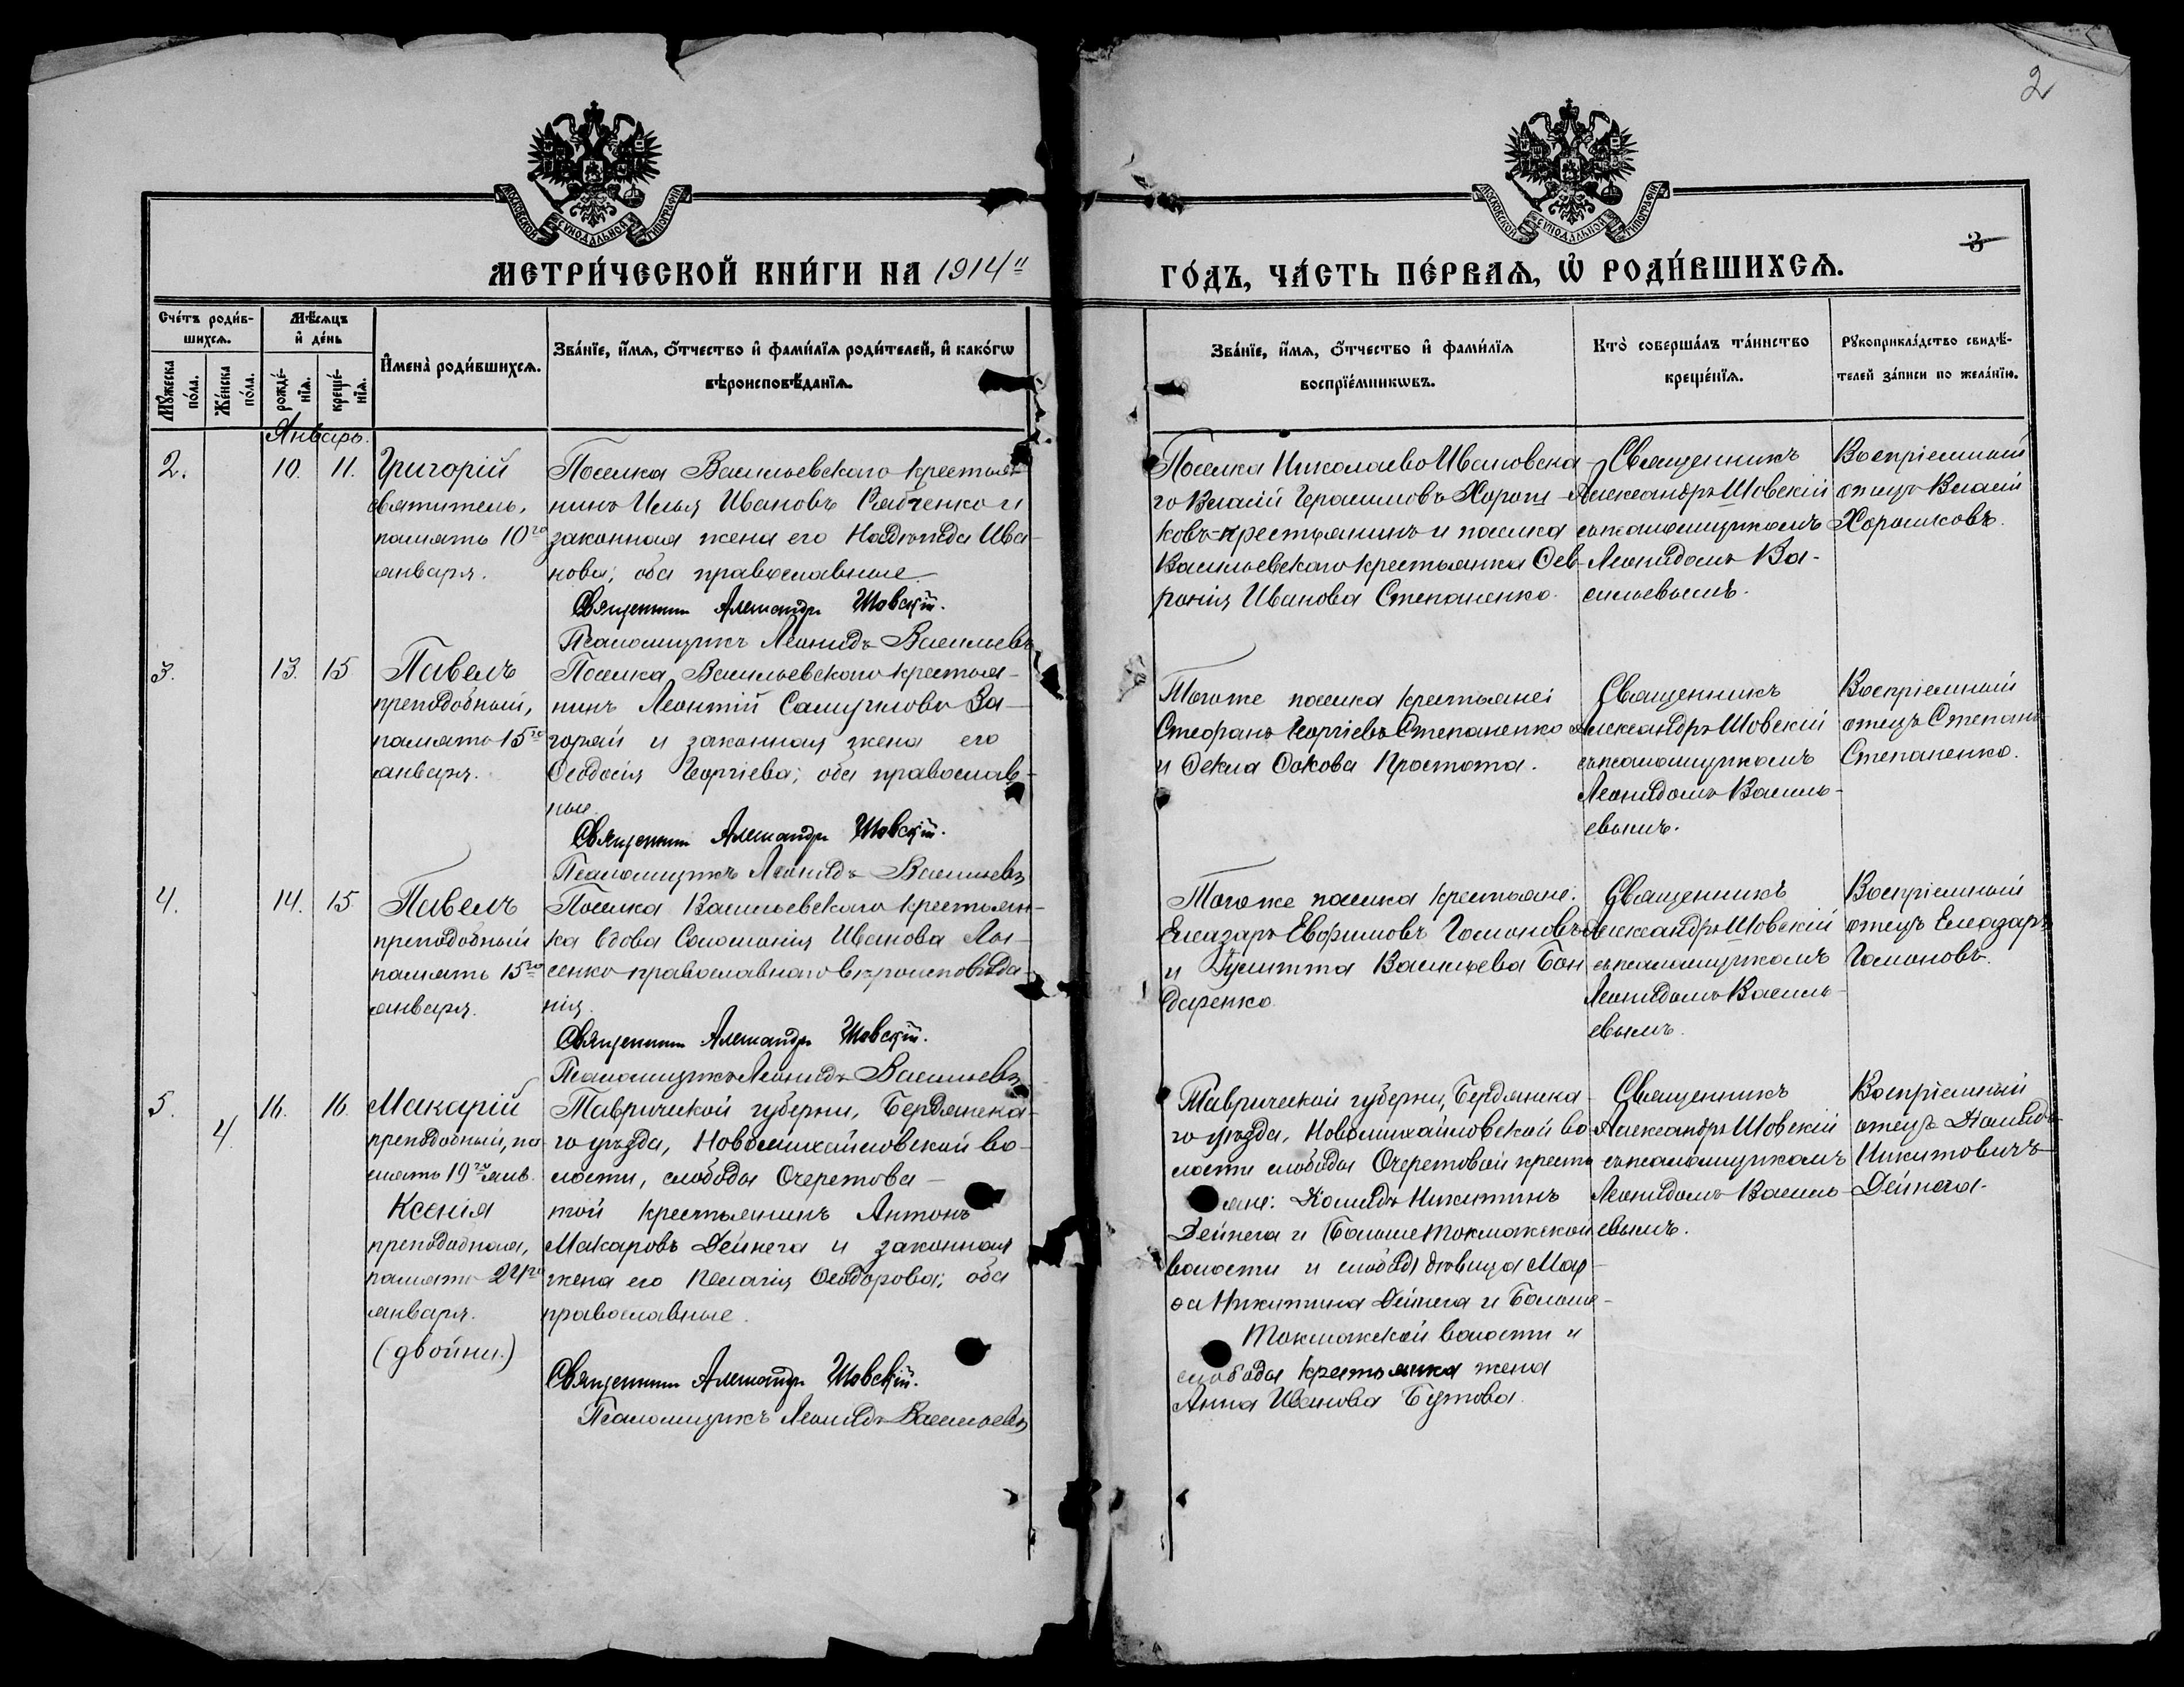 2
МОСКОВСКОЙ СУНОДАЛЬНОЙ ТИПОГРАФІИ
МОСКОВСКОЙ СУНОДАЛЬНОЙ ТИПОГРАФІИ
3
МЕТРИ́ЧЕСКОЙ КНИ́ГИ НА 1914
ГО́ДЪ, ЧА́СТЬ ПЕ́РВАѦ, Ѡ҆ РОДИ́ВШИХСѦ.
Сче́тъ роди́в-
шихсѧ.
Мꙋ́жеска по́ла.
Же́нска по́ла.
Мѣ́сѧцъ
и҆ де́нь
рожде́-нїѧ.
креще́-нїѧ.
И҆мена̀ роди́вшихсѧ.
Зва́нїе, и҆́мѧ, ѻ҆́тчество и҆ фами́лїѧ роди́телей, и҆ како́гѡ
вѣроисповѣ́данїѧ.
Зва́нїе, и҆́мѧ, ѻ҆́тчество и҆ фами́лїѧ
воспрїе́мникѡвъ.
Кто̀ соверша́лъ та́инство
креще́нїѧ.
Рꙋкоприкла́дство свидѣ́-
телей за́писи по жела́нїю.
Январь.
2.
10.
11.
Григорій
святитель,
память 10го
января.
Поселка Васильевскаго крестья-
нинъ Илья Ивановъ Рябченко и
законная жена его Надежда Ива-
нова; оба православные.
Священник Александр Шовскій.
Псаломщикъ Леонидъ Васильевъ
Поселка Николаево Ивановска-
го Власій Герасимовъ Хорош-
ковъ-крестьянинъ и поселка
Васильевскаго крестьянка Фев-
ронія Иванова Степаненко.
Священникъ
Александръ Шовскій
съ псаломщикомъ
Леонидомъ Ва-
сильевымъ.
Воспріемный
отецъ Власій
Хорошковъ.
3.
13.
15
Павелъ
преподобный,
память 15го
января.
Поселка Васильевскаго крестья-
нинъ Леонтій Самуиловъ За-
горай и законная жена его
Феодосія Георгіева; оба православ-
ные.
Священник Александр Шовскій.
Псаломщикъ Леонидъ Васильевъ
Тогоже поселка крестьяне:
Стефанъ Георгіевъ Степаненко
и Фекла Фокова Простота.
Священникъ
Александръ Шовскій
съ псаломщикомъ
Леонидомъ Василь-
евымъ.
Воспріемный
отецъ Степанъ
Степаненко.
4.
14.
15
Павелъ
преподобный
память 15го
января.
Поселка Васильевскаго крестьян-
ка вдова Соломонія Иванова
православнаго вѣроисповѣда-
нія.
Священник Александр Шовскій.
Псаломщикъ Леонидъ Васильевъ
Тогоже поселка крестьяне:
Елеазаръ Евфимовъ Гомоновъ
и Васильева Бон
даренко
Священникъ
Александръ Шовскій
съ псаломщикомъ
Леонидомъ Василь-
евымъ.
Воспріемный
отецъ Елеазаръ
Гомоновъ.
5.
4.
16.
16.
Макарій
преподобный, па-
мять 19го янв.
Ксенія
преподобная,
память 24го
января.
(двойни.)
Таврической губерни, Бердянска-
го уѣзда, Новомихайловской во-
лости, слободы Очеретова-
той крестьянинъ Антонъ
Макаровъ Дейнега и законная
жена его Пелагія Феодорова; оба
православные.
Священник Александр Шовскій.
Псаломщикъ Леонидъ Васильевъ
Таврической губерни, Бердянска-
го уѣзда, Новомихайловской во
лости слободы Очеретовой кресть
яне: Никитинъ
Дейнега и Больше Токмакской
волости и слободы дѣвица Мар-
фа Никитина Дейнега и Больше-
Токмакской волости и
слободы крестьянка жена
Анна Иванова Бутова.
Священникъ
Александръ Шовскій
съ псаломщикомъ
Леонидомъ Василь-
евымъ.
Воспріемный
отецъ
Никитовичъ
Дейнега.